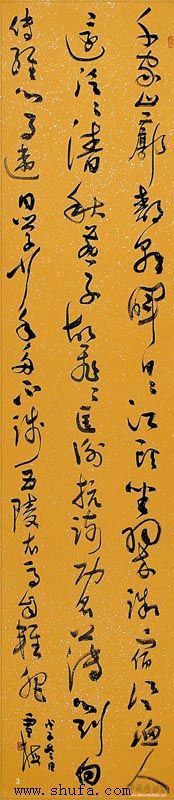 千家山郭静朝暉日日江樓坐翠微信宿漁人
還泛泛清秋燕子故飛飛匡衡抗疏功名薄劉向
傳經心事違同學少年多不賤五陵衣馬自輕肥
www.shufa.com